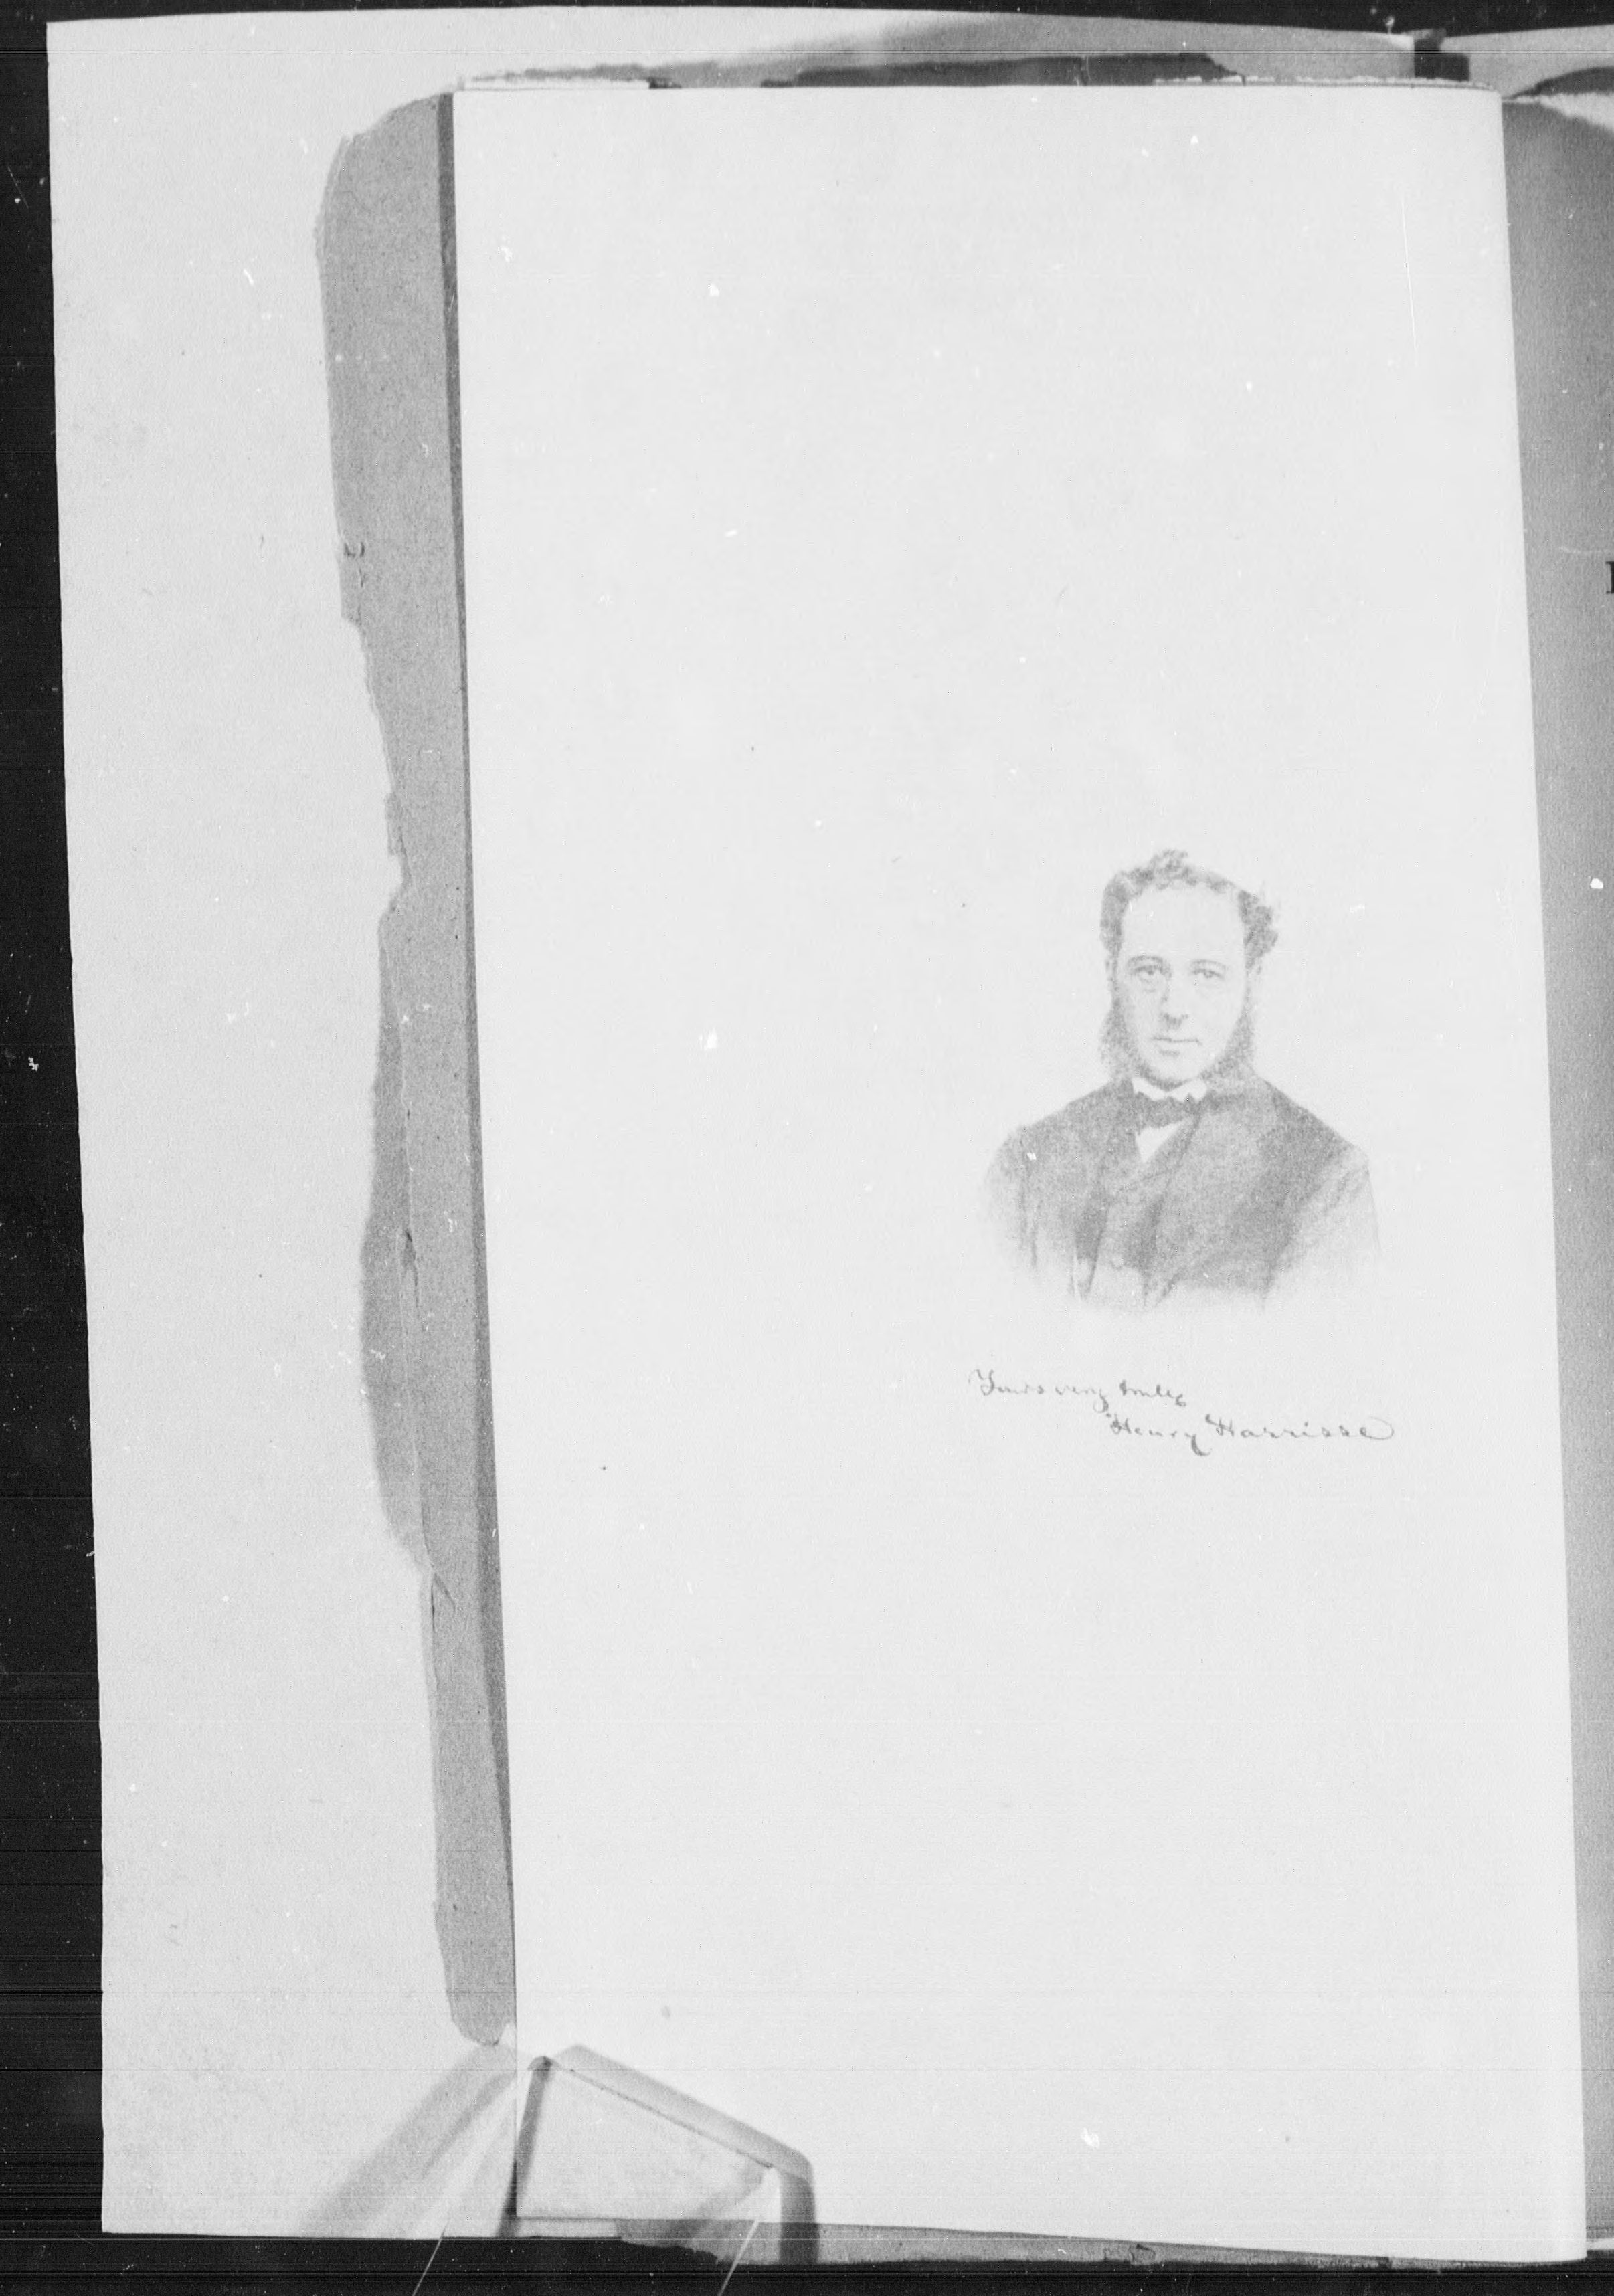 Yours very truly
Henry Harrisse